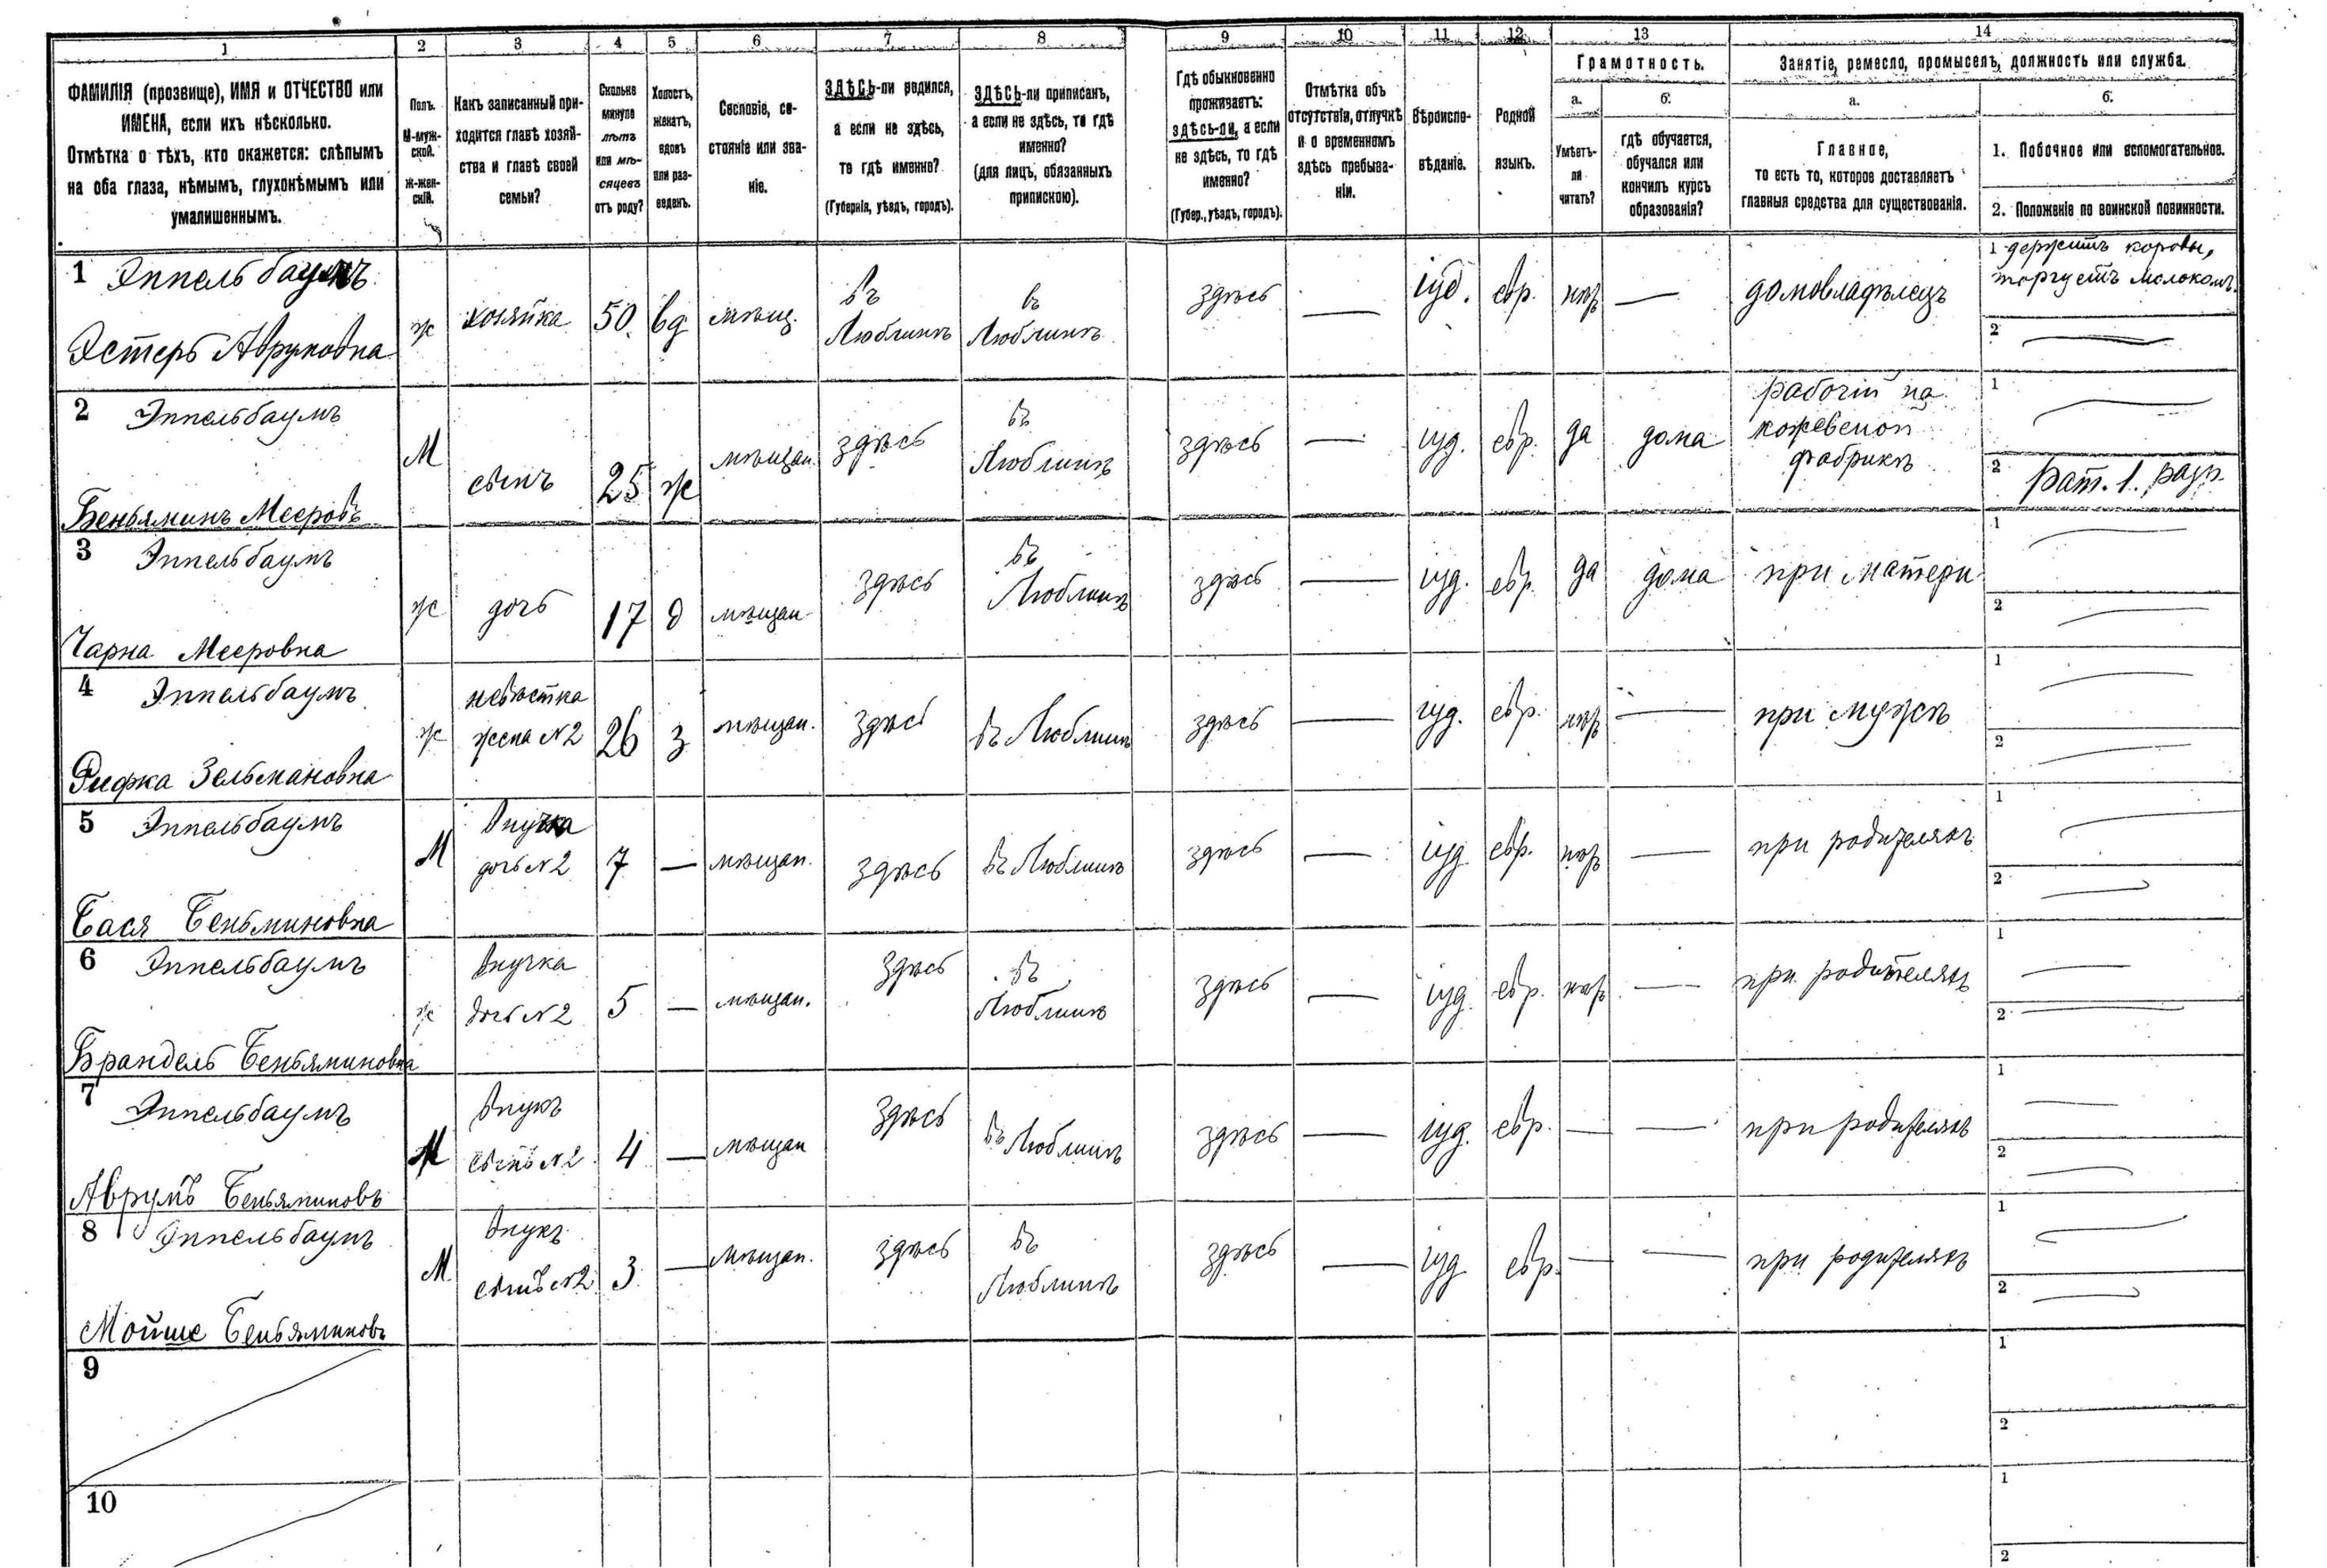 1 2 3 4 5 6 7 8 9 10 11 12 13 14
ФАМИЛІЯ (прозвище), ИМЯ и ОТЧЕСТВО или
ИМЕНА, если ихъ нѣсколько.
Отмѣтка о тѣхъ, кто окажется: слѣпымъ
на оба глаза, нѣмымъ, глухонѣмымъ или
умалишеннымъ.
Полъ.
М-муж-
ской.
Ж-жен-
скій.
Какъ записанный при-
ходится главѣ хозяй-
ства и главѣ своей
семьи?
Сколько
минуло
лѣтъ
или мѣ-
сяцевъ
отъ роду?
Холостъ,
женатъ,
вдовъ
или раз-
веденъ.
Сословіе, со-
стояніе или зва-
ніе.
ЗДѢСЬ-ли родился,
а если не здѣсь,
то гдѣ именно?
(Губернія, уѣздъ, городъ).
ЗДѢСЬ-ли приписанъ,
а если не здѣсь, то гдѣ
именно?
(для лицъ, обязанныхъ
припискою).
Гдѣ обыкновенно
проживаетъ:
здѣсь-ли, а если
не здѣсь, то гдѣ
именно?
(Губер., уѣздъ, городъ).
Отмѣтка объ
отсутствіи, отлучкѣ
и о временномъ
здѣсь пребыва-
ніи.
Вѣроиспо-
вѣданіе.
Родной
языкъ.
Грамотность.
а.
Умѣетъ-
ли
читать?
б.
гдѣ обучается,
обучался или
кончилъ курсъ
образованія?
Занятіе, ремесло, промыселъ, должность или служба.
а.
Главное,
то есть то, которое доставляетъ
главныя средства для существованія.
б.
1. Побочное или вспомогательное.
2. Положеніе по воинской повинности.
1 Эппельбаумъ
Эстеръ Аврумовна
ж хозяйка 50 вд мѣщ.
въ
Люблинѣ
въ
Люблинѣ
здѣсь — іуд. евр. нѣтъ — домовладѣлецъ
1 держитъ коровы,
торгуетъ молокомъ.
2 —
2 Эппельбаумъ
Беньяминъ Мееровъ
М сынъ 25 ж мѣщан. здѣсь
въ
Люблинѣ
здѣсь — іуд. евр. да дома
рабочій на
кожевеной
фабрикѣ
1 —
2 рат. 1. разр.
3 Эппельбаумъ
Чарна Мееровна
ж дочь 17 д мѣщан. здѣсь
въ
Люблинѣ
здѣсь — іуд. евр. да дома при матери
1 —
2 —
4 Эппельбаумъ
Рифка Зельмановна
ж
невѣстка
жена №2
26 з мѣщан. здѣсь въ Люблинѣ здѣсь — іуд. евр. нѣтъ — при мужѣ
1 —
2 —
5 Эппельбаумъ
Бася Беньминовна
М
внучка
дочь №2
7 — мѣщан. здѣсь въ Люблинѣ здѣсь — іуд. евр. нѣтъ — при родителяхъ
1 —
2 —
6 Эппельбаумъ
Брандель Беньяминовна
ж
внучка
дочь №2
5 — мѣщан. здѣсь
въ
Люблинѣ
здѣсь — іуд. евр. нѣтъ — при родителяхъ
1 —
2 —
7 Эппельбаумъ
Аврумъ Беньяминовъ
М
внукъ
сынъ №2
4 — мѣщан здѣсь въ Люблинѣ здѣсь — іуд. евр. — — при родителяхъ
1 —
2 —
8 Эппельбаумъ
Мойше Беньяминовъ
М
внукъ
сынъ №2
3 — мѣщан. здѣсь
въ
Люблинѣ
здѣсь — іуд. евр. — — при родителяхъ
1 —
2 —
9
1
2
10
1
2